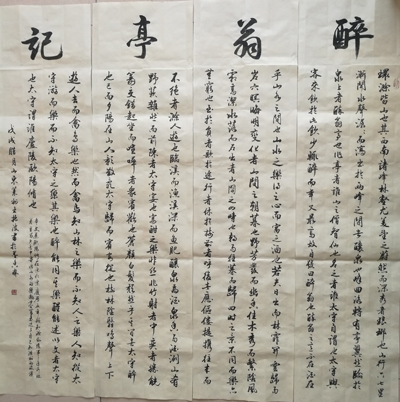 醉翁亭記
環滁皆山也其西南諸峰林壑尤美望之蔚然而深秀者琅琊也山行六七里
漸聞水聲潺潺而瀉出于兩峰之間者釀泉也峰回路轉有亭翼然臨於
泉上者醉翁亭也作亭者誰山之僧智仙也名之者誰太守自謂也太守與
客來飲於此飲少輒醉而年又最高故自號曰醉翁也醉翁之意不在酒在
乎山水之間也山水之樂得之心而寓之酒也若夫日出而林霏開雲歸而
岩穴暝晦明變化者山間之朝暮也野芳發而幽香佳木秀而繁陰風
霜高潔水落而石出者山間之四時也朝而往暮而歸四時之景不同而樂亦
無窮也至於負者歌於途行者休於樹前者呼後者應傴僂提攜往來而
不絕者滁人遊也臨溪而漁溪深而魚肥釀泉為酒泉香而酒洌山肴
野蔌雜然而前陳者太守宴也宴酣之樂非絲非竹射者中奕者勝觥
籌交錯起坐而喧嘩者眾賓歡也蒼顏白髮頹然乎其間者太守醉
也已而夕陽在山人影散亂太守歸而賓客從也樹林陰翳鳴聲上下
遊人去而禽鳥樂也然而禽鳥知山林之樂而不知人之樂人知從太
守遊而樂而不知太守之樂其樂也醉能同其樂醒能述以文者太守
也太守謂誰廬陵歐陽修也
戊戌臘月